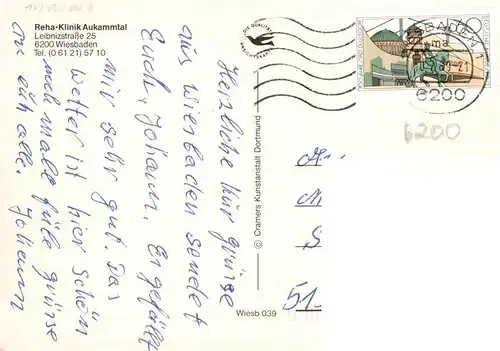 Reha-Klinik Aukammtal
Leibnizstraße 25
6200 Wiesbaden
Tel. (0 61 21) 57 10
Herzliche kür grüsse
aus Wiesbaden sendet
Euch, Johann. Er gefällt
mir sehr gut. Das
wetter ist hier schön
noch mals füle grüsse
an euch alle. Johann
© Cramers Kunstanstalt Dortmund
Wiesb 039
DIE QUALITÄTS
ANSICHTSKARTE
WIESBADEN 1
6200
6200
51-